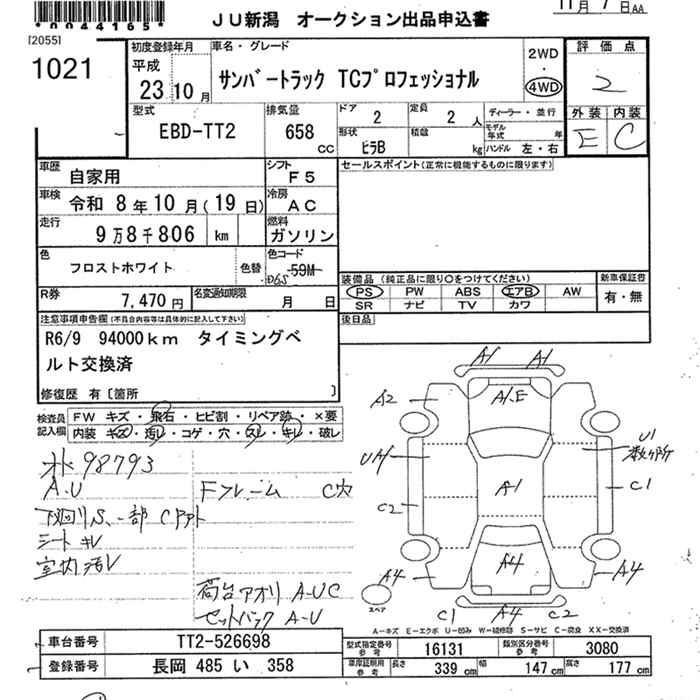 *0044165*
JU新潟 オークション出品申込書
11月 7日 AA
[2055]
1021
初度登録年月
平成
23年10月
車名・グレード
サンバートラック TCプロフェッショナル
2WD
・
4WD
評価点
2
外装 内装
E C
型式
EBD-TT2
排気量
658 cc
ドア
2
定員
2 人
形状
ヒラB
積載
kg
ディーラー・並行
モデル年式 年
ハンドル 左・右
車歴
自家用
シフト
F5
車検
令和 8年10月(19日)
冷房
AC
走行
9万8千806 km
燃料
ガソリン
色
フロストホワイト
色替
色コード
59M
D6S
R券
7,470円
名変通知期限
月 日
セールスポイント(正常に機能するものに限ります)
装備品(純正品に限り○をつけてください)
PS PW ABS エアB AW
SR ナビ TV カワ
新車保証書
有・無
後日品
注意事項申告欄(不具合内容等は具体的に記入して下さい)
R6/9 94000km タイミングベ
ルト交換済
修復歴 有〔箇所 〕
検査員
記入欄
FW キズ・飛石・ヒビ割・リペア跡・×要
内装 キズ・汚レ・コゲ・穴・スレ・キレ・破レ
98793
A.U
Fフレーム C穴
シート キレ
荷台アオリ A-UC
セットバック A-U
A1 A1
A2
A1.E
U1
C2
A1
U1
数ヶ所
C1
A4
A4
A4
C1 A4 C2
スペア
A－キズ E－エクボ U－凹み W－補修跡 S－サビ C－腐食 XX－交換済
車台番号
TT2-526698
登録番号
長岡 485 い 358
型式指定番号
参考
16131
類別区分番号
参考
3080
車庫証明用
参考
長さ
339 cm
幅
147 cm
高さ
177 cm